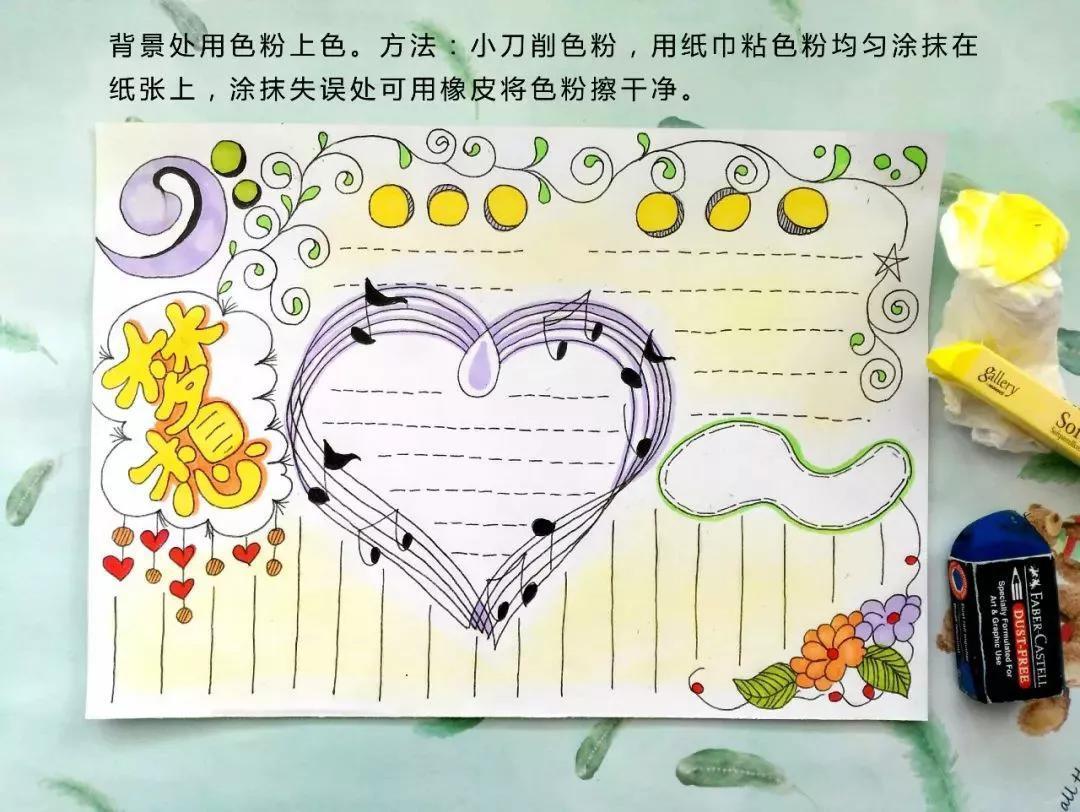 背景处用色粉上色。方法：小刀削色粉，用纸巾粘色粉均匀涂抹在
纸张上，涂抹失误处可用橡皮将色粉擦干净。
梦想
gallery
FABER-CASTELL
DUST-FREE
Specially Formulated For
Art & Graphic Use